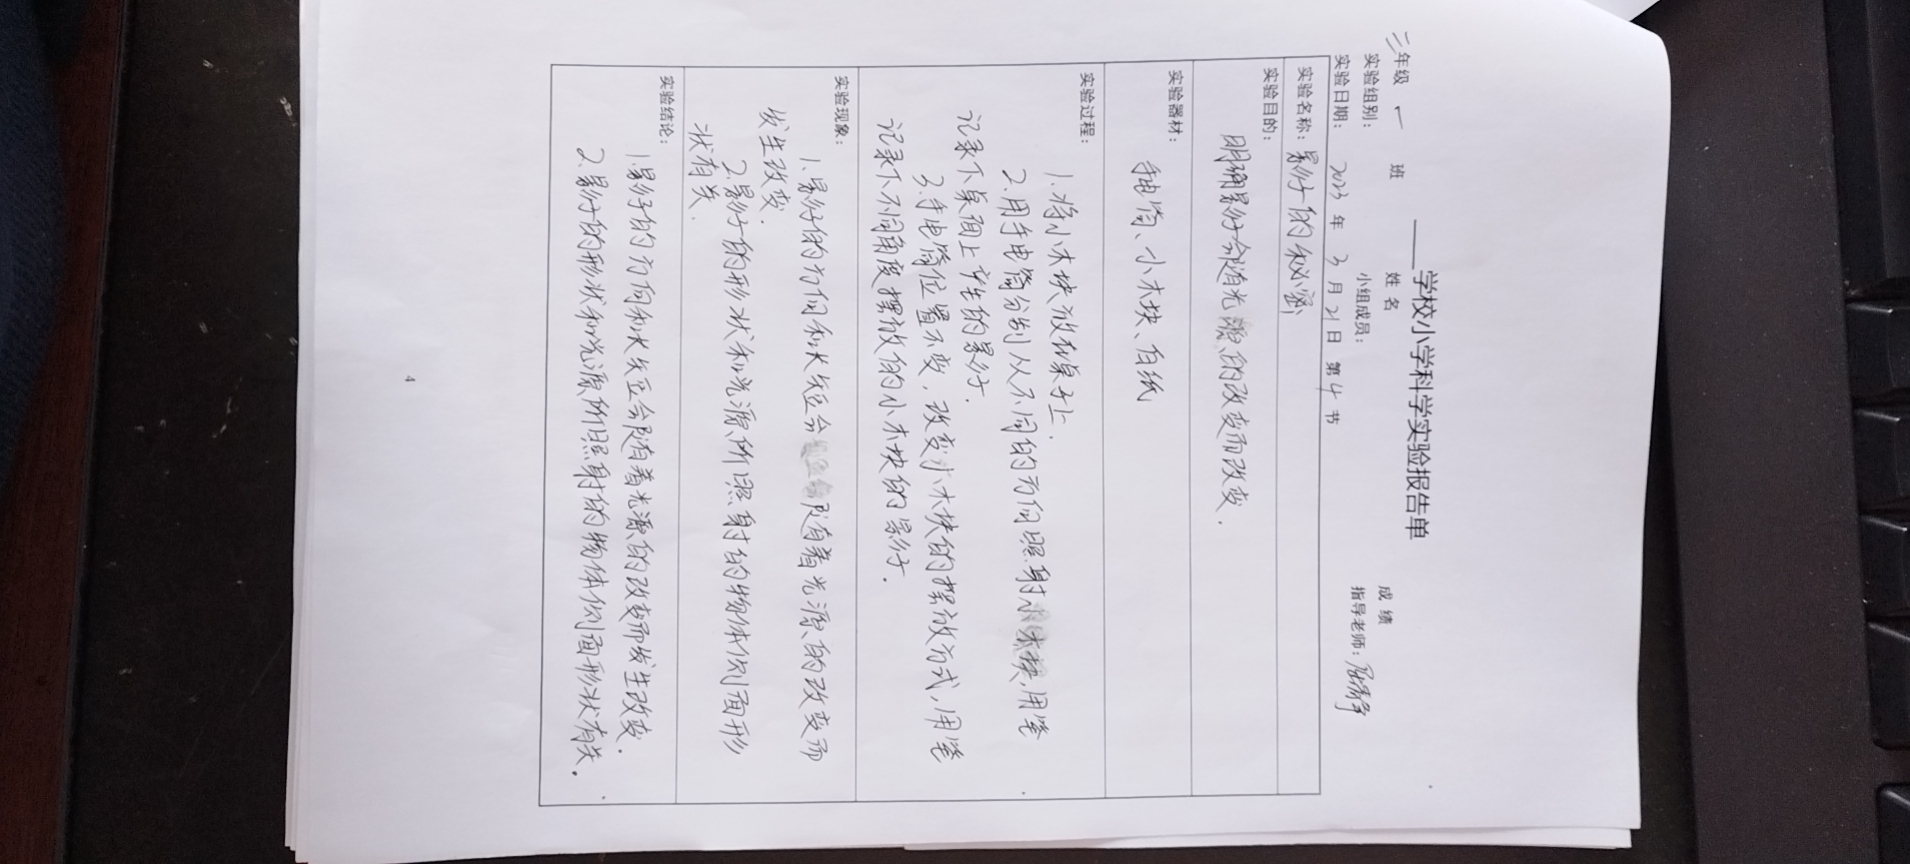 学校小学科学实验报告单
三年级 一 班 姓名 成绩
实验组别： 小组成员： 指导老师：
实验日期： 2023 年 3 月 21 日 第 4 节
实验名称：影子的秘密
实验目的：
明确影子会随光源的改变而改变.
实验器材：
手电筒、小木块、白纸
实验过程：
1.将小木块放在桌子上.
2.用手电筒分别从不同的方向照射小木块,用笔
记录下桌面上产生的影子.
3.手电筒位置不变,改变小木块的摆放方式,用笔
记录下不同角度摆放的小木块的影子.
实验现象：
1.影子的方向和长短会随着光源的改变而
发生改变.
2.影子的形状和光源所照射的物体侧面形
状有关.
实验结论：
1.影子的方向和长短会随着光源的改变而发生改变.
2.影子的形状和光源所照射的物体侧面形状有关.
4